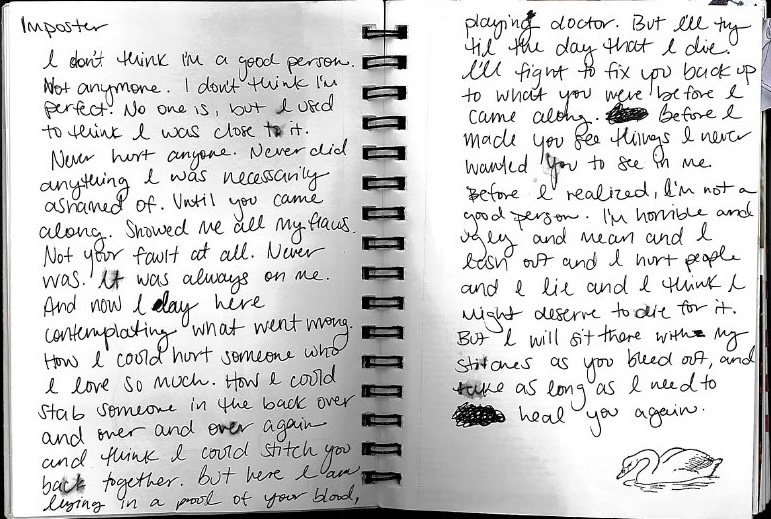 Imposter
I don't think I'm a good person.
Not anymone. I don't think I'm
perfect. No one is, but I used
to think I was close to it.
Never hurt anyone. Never did
anything I was necessarily
ashamed of. Until you came
along. Showed me all my flaws.
Not your fault at all. Never
was. It was always on me.
And now I day here
contemplating what went wrong.
How I could hurt someone who
I love so much. How I could
stab someone in the back over
and over and over again
and think I could stitch you
back together. but here I am
lying in a pool of your blood,
playing doctor. But I'll try
til the day that I die.
I'll fight to fix you back up
to what you were before I
came along. Before I
made you see things I never
wanted you to see in me.
Before I realized, I'm not a
good person. I'm horrible and
ugly and mean and I
lash out and I hurt people
and I lie and I think I
might deserve to die for it.
But I will sit there with my
stitches as you bleed out, and
take as long as I need to
heal you again.